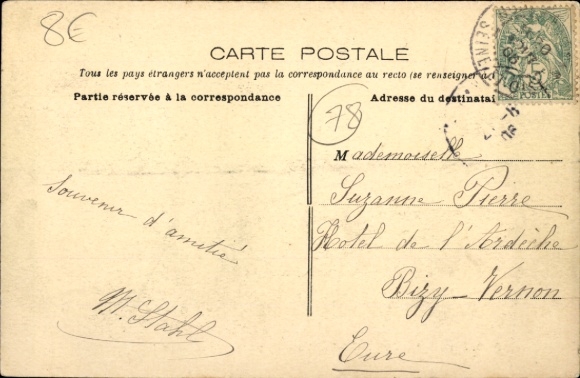 8€
CARTE POSTALE
Tous les pays étrangers n'acceptent pas la correspondance au recto (se renseigner à
Partie réservée à la correspondance
Adresse du destinatai
78
Mademoiselle
Suzanne Pierre
Hotel de l'Ardèche
Bizy-Vernon
Eure
Souvenir d'amitié
M. Stahl
SEINE
POSTES